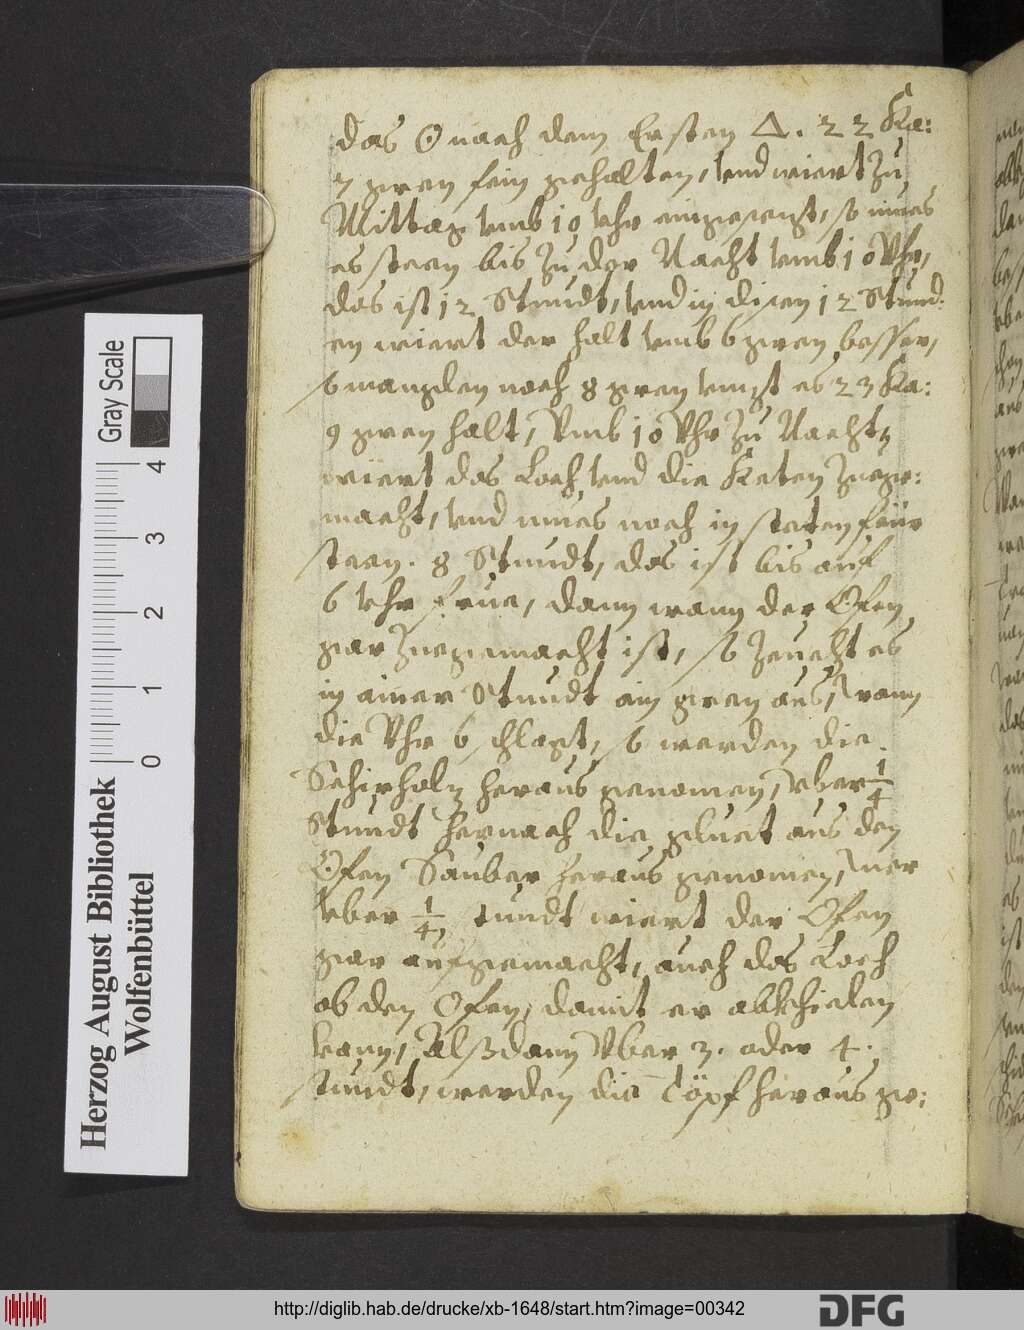 das ☉ nach dem Ersten △. 22 Ka:
7 gren fein gehalten, vnd wiert zu
Mittag vmb 10 Vhr eingesezt, so mues
es steen bis zu der Nacht vmb 10 Vhr,
das ist 12 Stundt, vnd in disen 12 Stund:
en wiert der halt vmb 6 gren besser,
so manglen noch 8 gren vmst es 23 Ka:
9 gren halt, Vmb 10 Vhr zu Nacht,
wiert das Loch vnd die Keten zuege:
macht, vnd mues noch in steten feür
steen. 8 Stundt, das ist bis auf
6 Vhr frue, dann wann der Ofen
gar zuegemacht ist, so zeucht es
in ainer Stundt ain gren aus, wann
die Vhr 6 schlegt, so werden die
Schirholz heraus genomen, vber 1/4
Stundt hernach die gluet aus den
Ofen Sauber heraus genomen,
vber 1/4 stundt wiert der Ofen
gar aufgemacht, auch das Loch
ob den Ofen, damit er abkhielen
kann, Alßdann Vber 3. oder 4.
stundt, werden die Töpf heraus ge:
Gray Scale
0 1 2 3 4
Herzog August Bibliothek
Wolfenbüttel
http://diglib.hab.de/drucke/xb-1648/start.htm?image=00342
DFG